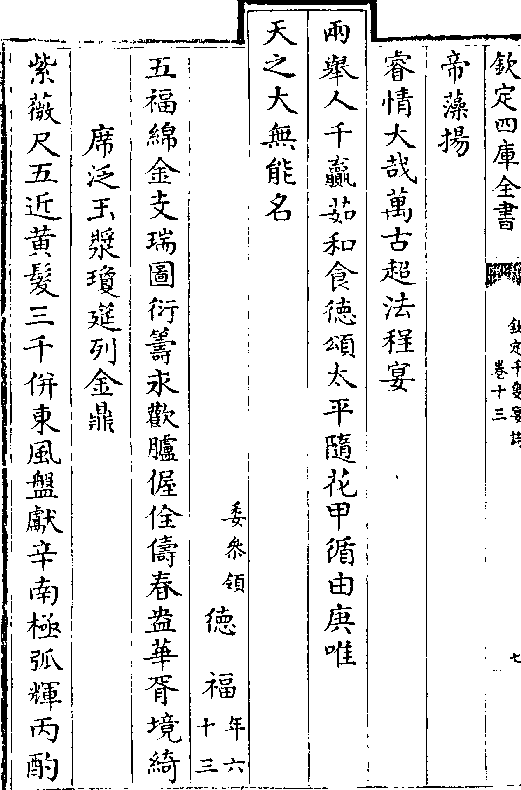 欽定四庫全書
欽定千叟宴詩
卷十三
七
帝藻揚
睿情大哉萬古超法程宴
兩舉人千贏茹和食德頌太平隨花甲循由庚唯
天之大無能名
委參領 德福 年六十三
五福綿金支瑞圖衍籌永歡臚偓佺儔春盎華胥境綺
席泛玉漿瓊筵列金鼎
紫薇尺五近黃髮三千併東風盤獻辛南極弧輝丙酌